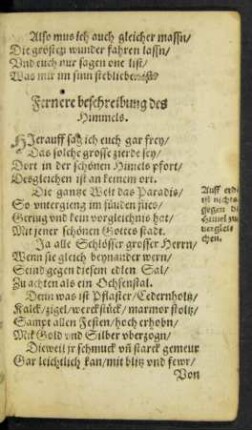 Also mus ich auch gleicher massn/
Die grösten wunder fahren lassn/
Und euch nur sagen one list/
Was mir im sinn stebliebenist/
Fernere beschreibung des
Himmels.
HIerauff sag ich euch gar frey/
Das solche grosse zierde sey/
Dort in der schönen Himels pfort/
Desgleichen ist an keinem ort.
Die gantze Welt das Paradis/
So untergieng im sünden fües/
Genug und kein vorgleichnis hat/
Mit jener schönen Gottes stadt.
Ja alle Schlösser grosser Herrn/
Wenn sie gleich beynander wern/
Seind gegen diesem edlen Sal/
Zu achten als ein Ochsenstal.
Denn was ist Pflaster/Cedernholtz/
Kalck/zigel/werckstück/marmor stoltz/
Sampt allen Festen/hoch erhobn/
Mit Gold und Silber vberzogn/
Dieweil jr schmuck vñ starck gemeur
Gar leichtlich kan/mit blitz und fewr/
Von
Auff erdē
ist nichts
gegen dē
Himel zu
vergleichen
chen.